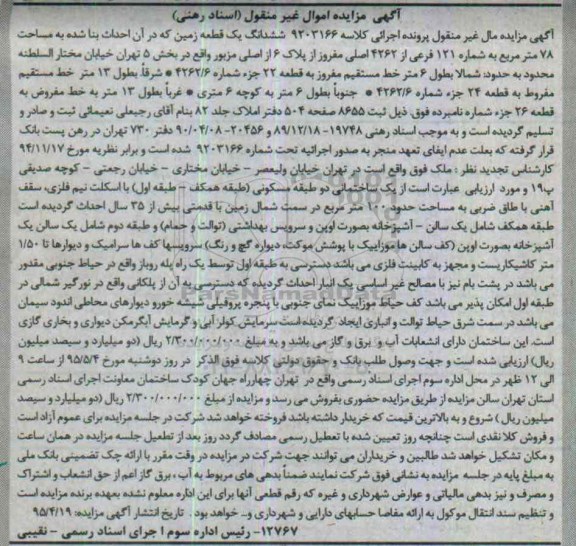 آگهی مزایده اموال غیر منقول (اسناد رهنی)
آگهی مزایده مال غیر منقول پرونده اجرائی کلاسه ۹۲۰۳۱۶۶ ششدانگ یک قطعه زمین که در آن احداث بنا شده به مساحت
۷۸ متر مربع به شماره ۱۲۱ فرعی از ۴۲۶۲ اصلی مفروز از پلاک ۶ از اصلی مزبور واقع در بخش ۵ تهران خیابان مختار السلطنه
محدود به حدود: شمالا بطول ۶ متر خط مستقیم مفروز به قطعه ۲۲ جزء شماره ۴۲۶۲/۶ * شرقاً بطول ۱۳ متر خط مستقیم
مفروط به قطعه ۲۴ جزء شماره ۴۲۶۲/۶ * جنوبا بطول ۶ متر به کوچه ۶ متری * غرباً بطول ۱۳ متر به خط مفروض به
قطعه ۲۶ جزء شماره نامبرده فوق ذیل ثبت ۸۶۵۵ صفحه ۵۰۴ دفتر املاک جلد ۸۲ بنام آقای رجبعلی نعیمائی ثبت و صادر و
تسلیم گردیده است و به موجب اسناد رهنی ۱۹۷۴۸- ۸۹/۱۲/۱۸ و ۲۰۴۵۶- ۹۰/۰۴/۰۸ دفتر ۷۳۰ تهران در رهن پست بانک
قرار گرفته که بعلت عدم ایفای تعهد منجر به صدور اجرائیه تحت شماره ۹۲۰۳۱۶۶ شده است و برابر نظریه مورخ ۹۴/۱۱/۱۷
کارشناس تجدید نظر : ملک فوق واقع است در تهران خیابان ولیعصر - خیابان مختاری - خیابان رجعتی - کوچه صدیقی
پ۱۹ و مورد ارزیابی عبارت است از یک ساختمانی دو طبقه مسکونی (طبقه همکف - طبقه اول) با اسکلت نیم فلزی، سقف
آهنی با طاق ضربی به مساحت حدود ۱۰۰ متر مربع در سمت شمال زمین با قدمتی بیش از ۳۵ سال احداث گردیده است
طبقه همکف شامل یک سالن - آشپزخانه بصورت اوپن و سرویس بهداشتی (توالت و حمام) و طبقه دوم شامل یک سالن یک
آشپزخانه بصورت اوپن (کف سالن ها موزاییک با پوشش موکت، دیواره گچ و رنگ) سرویسها کف ها سرامیک و دیوارها تا ۱/۵۰
متر کاشیکاریست و مجهز به کابینت فلزی می باشد دسترسی به طبقه اول توسط یک راه پله روباز واقع در حیاط جنوبی مقدور
می باشد در پشت بام نیز با مصالح غیر اساسی یک انبار احداث گردیده که دسترسی به آن از پلکانی واقع در نورگیر شمالی در
طبقه اول امکان پذیر می باشد کف حیاط موزاییک نمای جنوبی با پنجره پروفیلی شیشه خورو دیوارهای محاطی اندود سیمان
می باشد در سمت شرق حیاط توالت و انباری ایجاد گردیده است سرمایش کولر آبی و گرمایش آبگرمکن دیواری و بخاری گازی
است. این ساختمان دارای انشعابات آب و برق و گاز می باشد و به مبلغ ۲/۳۰۰/۰۰۰/۰۰۰ ریال (دو میلیارد و سیصد میلیون
ریال) ارزیابی شده است و جهت وصول طلب بانک و حقوق دولتی کلاسه فوق الذکر در روز دوشنبه مورخ ۹۵/۵/۴ از ساعت ۹
الی ۱۲ ظهر در محل اداره سوم اجرای اسناد رسمی واقع در تهران چهارراه جهان کودک ساختمان معاونت اجرای اسناد رسمی
استان تهران سالن مزایده از طریق مزایده حضوری بفروش می رسد و مزایده از مبلغ ۲/۳۰۰/۰۰۰/۰۰۰ ریال (دو میلیارد و سیصد
میلیون ریال ) شروع و به بالاترین قیمت که خریدار داشته باشد فروخته خواهد شد شرکت در جلسه مزایده برای عموم آزاد است
و فروش کلا نقدی است چنانچه روز تعیین شده با تعطیل رسمی مصادف گردد روز بعد از تعطیل جلسه مزایده در همان ساعت
و مکان تشکیل خواهد شد طالبین و خریداران می توانند جهت شرکت در مزایده در وقت مقرر با ارائه چک تضمینی بانک ملی
به مبلغ پایه در جلسه مزایده به نشانی فوق شرکت نمایند ضمناً بدهی های مربوط به آب ، برق گاز اعم از حق انشعاب و اشتراک
و مصرف و نیز بدهی مالیاتی و عوارض شهرداری و غیره که رقم قطعی آنها برای این اداره معلوم نشده بعهده برنده مزایده است
و تنظیم سند انتقال موکول به ارائه مفاصا حسابهای دارایی و شهرداری و... خواهد بود. تاریخ انتشار آگهی مزایده: ۹۵/۴/۱۹
۱۲۷۶۷- رئیس اداره سوم اجرای اسناد رسمی - نقیبی